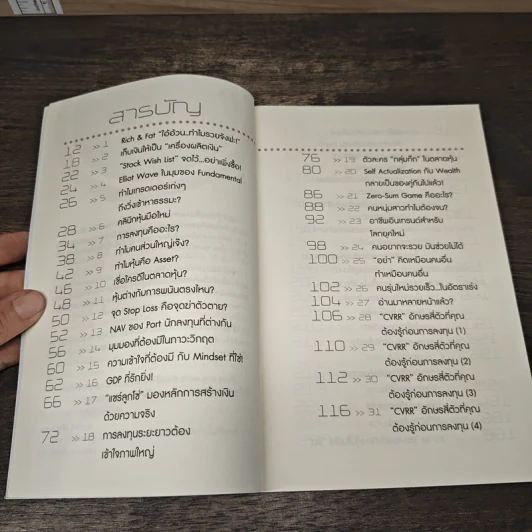 สารบัญ
12 >> 1 Rich & Fat "ไอ้อ้วน..ทำไมรวยจังฟะ!"
18 >> 2 เก็บเงินให้เป็น "เครื่องผลิตเงิน"
22 >> 3 "Stock Wish List" จดไว้...อย่าเพิ่งซื้อ!
24 >> 4 Elliot Wave ในมุมของ Fundamental
26 >> 5 ทำไมเทรดเดอร์เก่งๆ
ถึงวิ่งเข้าหาธรรมะ?
28 >> 6 คลินิกหุ้นมือใหม่
34 >> 7 การลงทุนคืออะไร?
38 >> 8 ทำไมคนส่วนใหญ่เจ๊ง?
42 >> 9 ทำไมหุ้นคือ Asset?
46 >> 10 เชื่อใครดีในตลาดหุ้น?
48 >> 11 หุ้นต่างกับการพนันตรงไหน?
50 >> 12 จุด Stop Loss คือจุดฆ่าตัวตาย?
52 >> 13 NAV ของ Port นักลงทุนที่ต่างกัน
56 >> 14 มุมมองที่ต้องมีในภาวะวิกฤต
60 >> 15 ความเข้าใจที่ต้องมี กับ Mindset ที่ใช่!
62 >> 16 GDP ที่รักยิ่ง!
66 >> 17 "แชร์ลูกโซ่" มองหลักการสร้างเงิน
ด้วยความจริง
72 >> 18 การลงทุนระยะยาวต้อง
เข้าใจภาพใหญ่
76 >> 19 ตัวละคร "กลุ่มถึก" ในตลาดหุ้น
80 >> 20 Self Actualization กับ Wealth
กลายเป็นของคู่กันไปแล้ว!
86 >> 21 Zero-Sum Game คืออะไร?
88 >> 22 คนหนุ่มสาวทำไมต้องจน?
92 >> 23 อาชีพอินเทรนด์สำหรับ
โลกยุคใหม่
98 >> 24 คนอยากจะรวย มันช่วยไม่ได้
100 >> 25 "อย่า" คิดเหมือนคนอื่น
ทำเหมือนคนอื่น
102 >> 26 คนรุ่นใหม่รวยเร็ว..ในอัตราเร่ง
104 >> 27 อ่านมาหลายหน้าแล้ว?
106 >> 28 "CVRR" อักษรสี่ตัวที่คุณ
ต้องรู้ก่อนการลงทุน (1)
110 >> 29 "CVRR" อักษรสี่ตัวที่คุณ
ต้องรู้ก่อนการลงทุน (2)
112 >> 30 "CVRR" อักษรสี่ตัวที่คุณ
ต้องรู้ก่อนการลงทุน (3)
116 >> 31 "CVRR" อักษรสี่ตัวที่คุณ
ต้องรู้ก่อนการลงทุน (4)